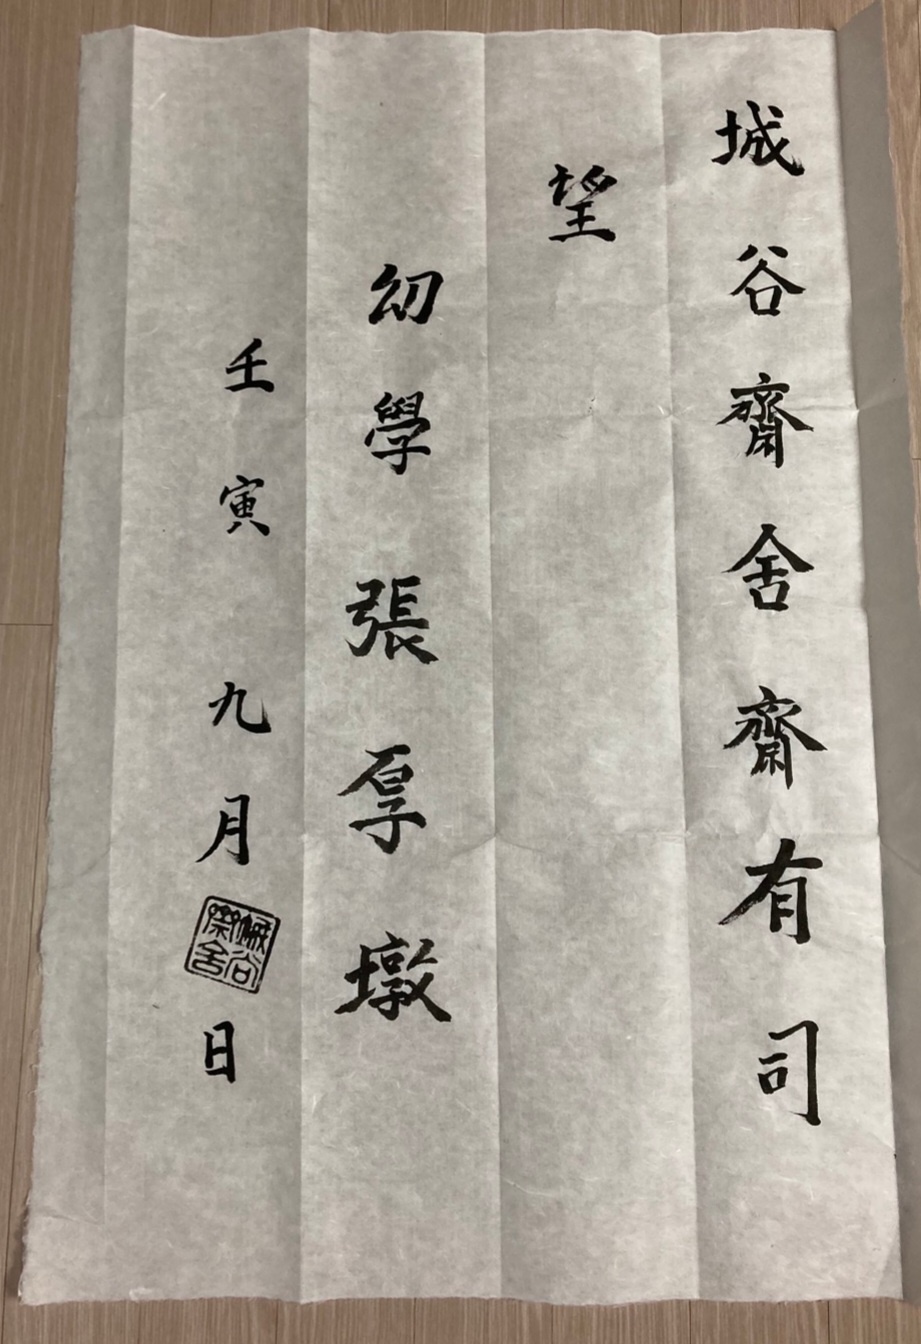 城谷齋舍齋有司
望
幼學 張厚墩
壬寅 九月 日
城谷齋舍